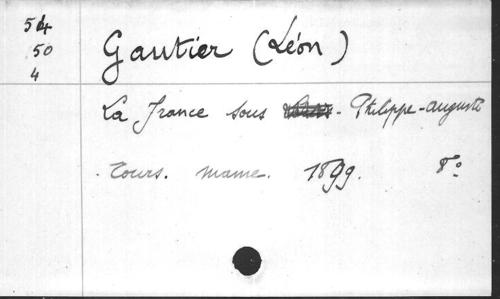 54
50
4
Gautier (Léon)
La France sous - Philippe-Auguste
Tours. Mame. 1899. 8°